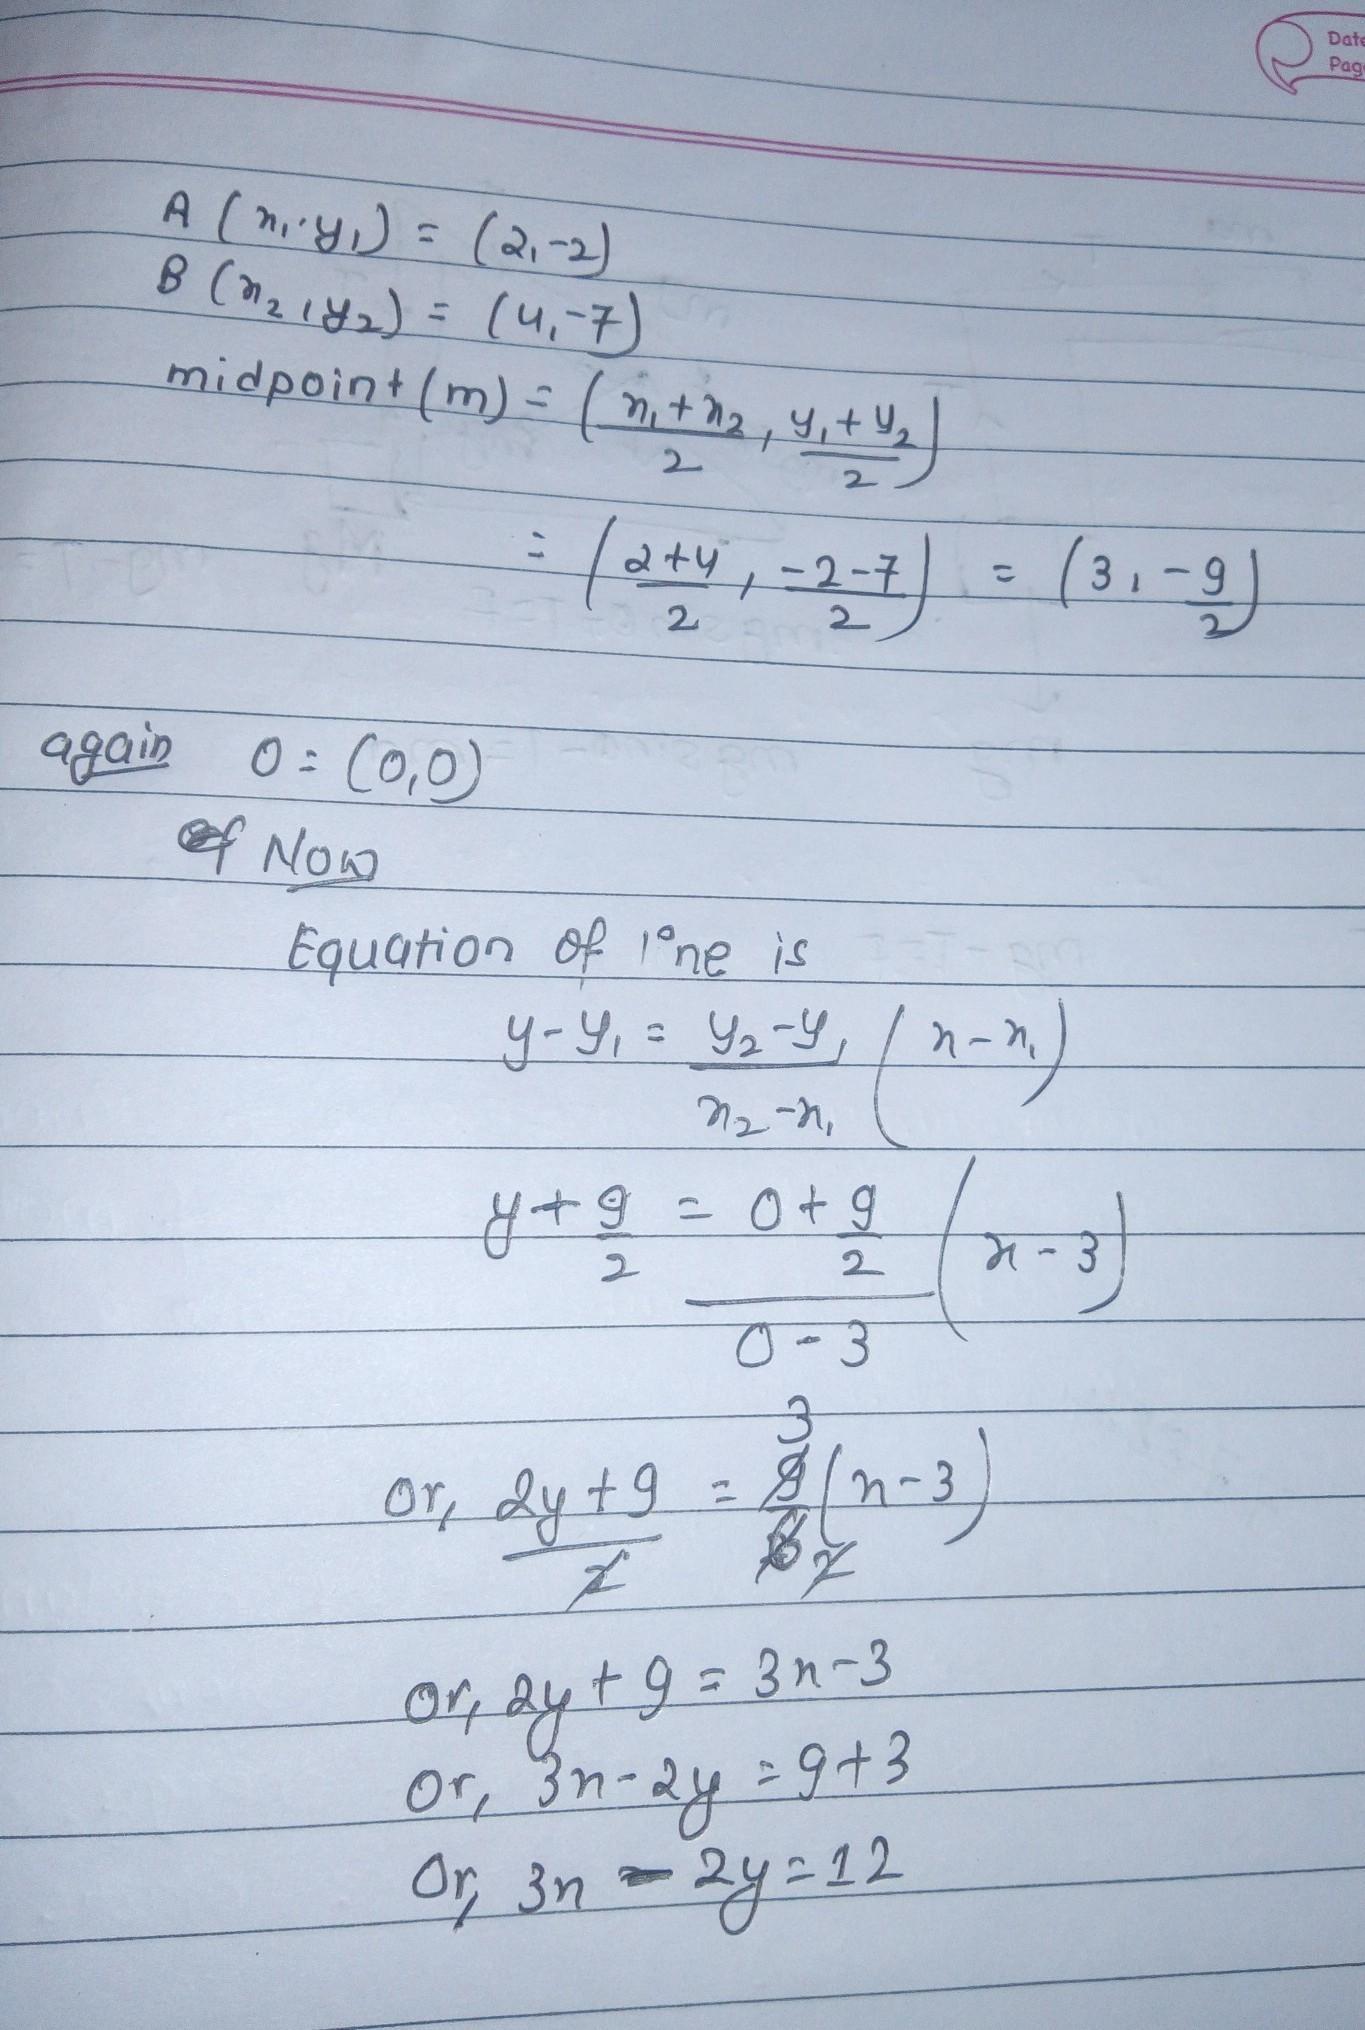 Date
Page
A (x₁, y₁) = (2, -2)
B (x₂, y₂) = (4, -7)
midpoint (m) = (x₁ + x₂ / 2, y₁ + y₂ / 2)
= (2+4 / 2, -2-7 / 2) = (3, -9/2)
again O = (0,0)
Now
Equation of line is
y - y₁ = y₂ - y₁ / x₂ - x₁ (x - x₁)
y + 9/2 = 0 + 9/2 / 0 - 3 (x - 3)
3
or, 2y + 9 / 2 = 9 / 6 2 (x - 3)
or, 2y + 9 = 3x - 3
or, 3x - 2y = 9 + 3
Or, 3x - 2y = 12